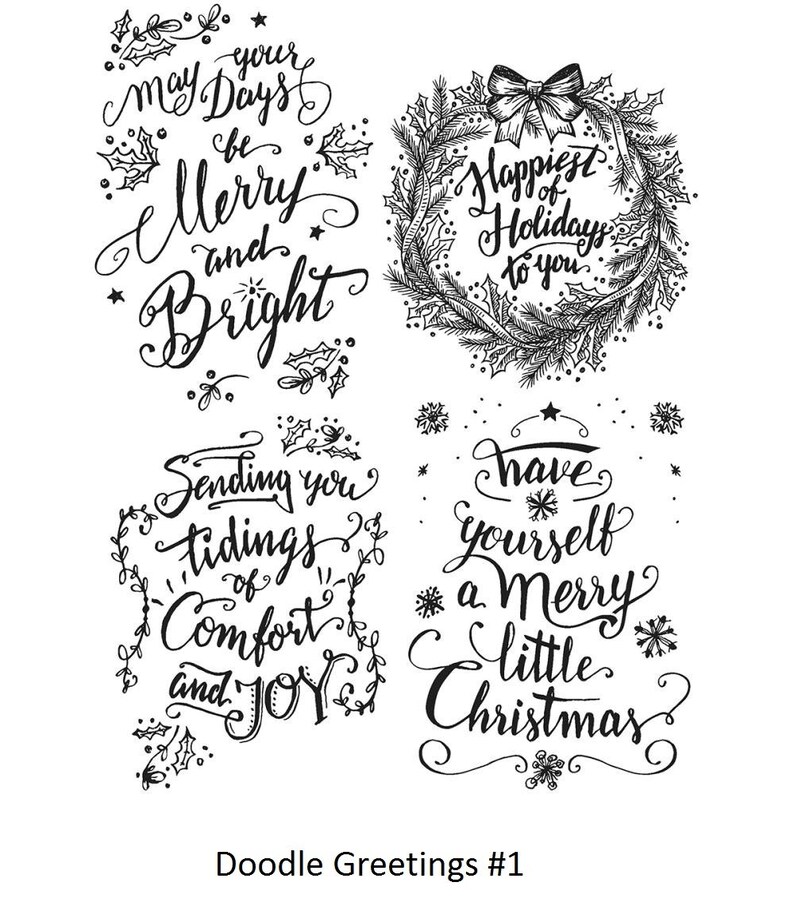 may your
Days
be
Merry
and
Bright
Happiest
of
Holidays
to you
Sending you
tidings
of
Comfort
and JOY
have
yourself
a Merry
little
Christmas
Doodle Greetings #1